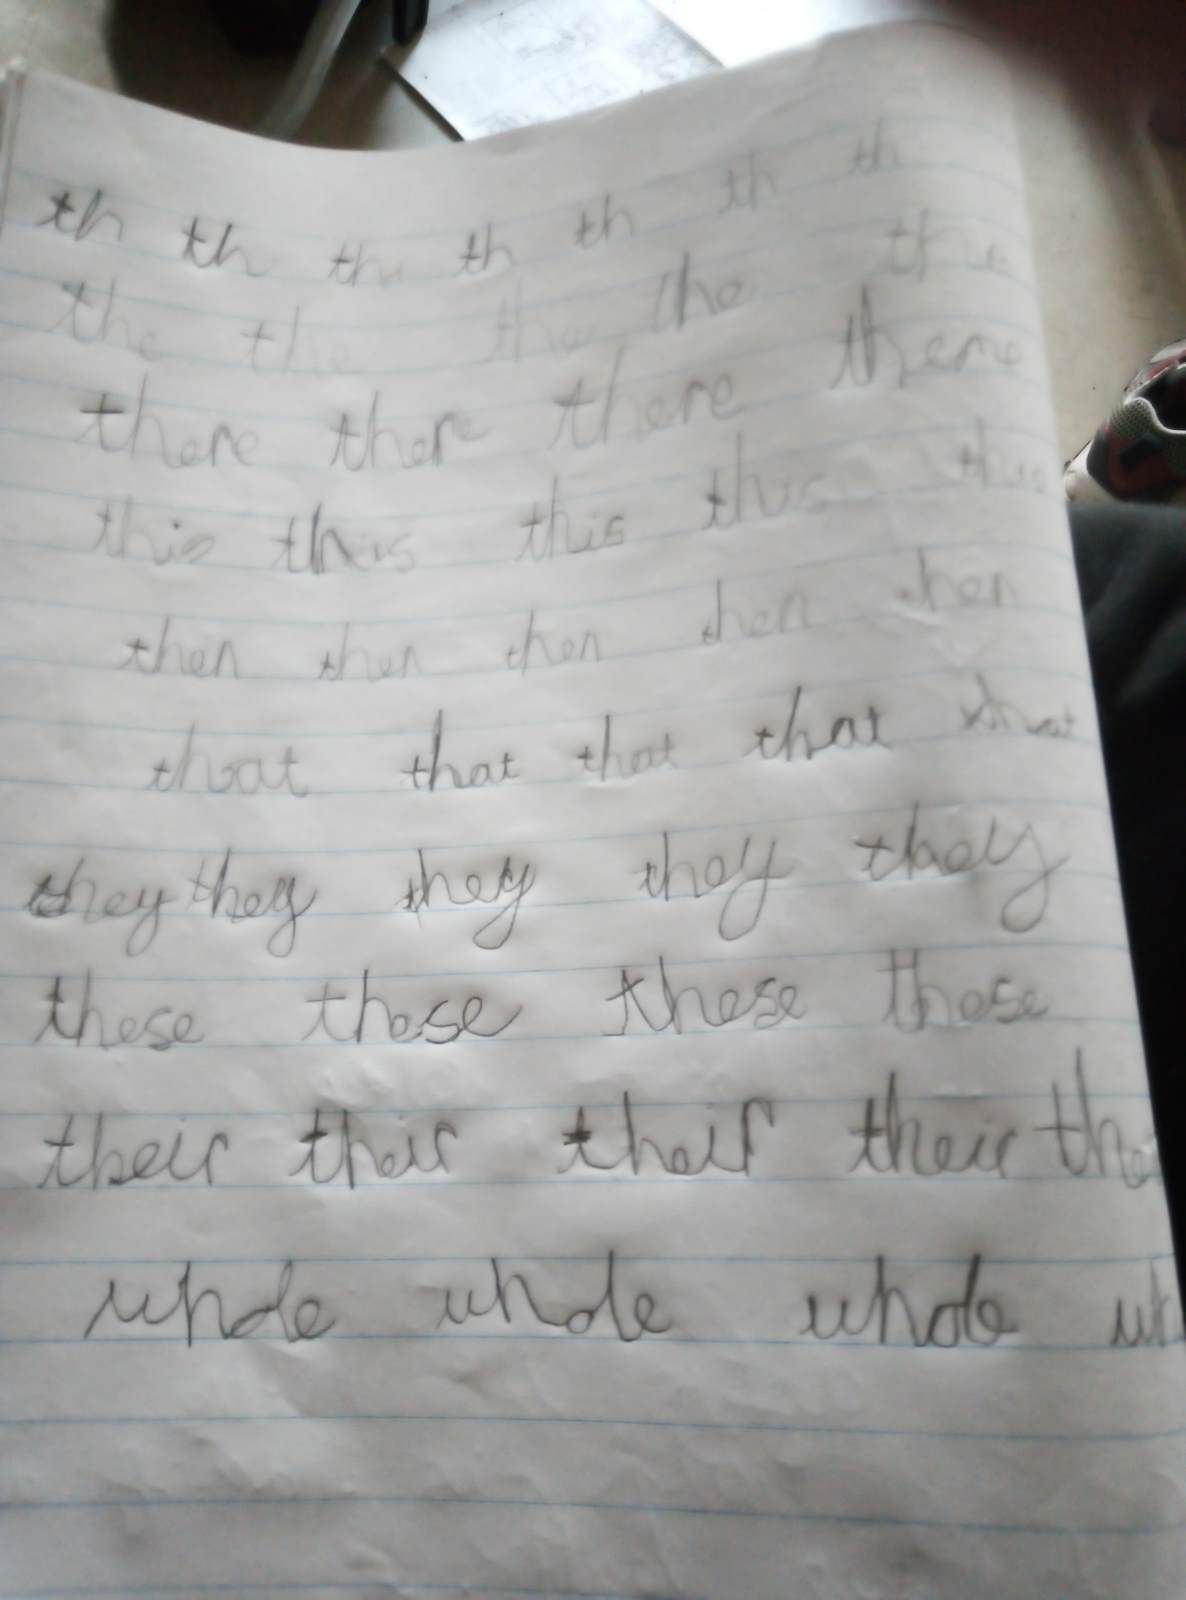 th th th th th th th
the the the the the
there there there there
this this this this this
then then then then then
that that that that that
they they they they they
these these these these
their their their their the
whole whole whole wh